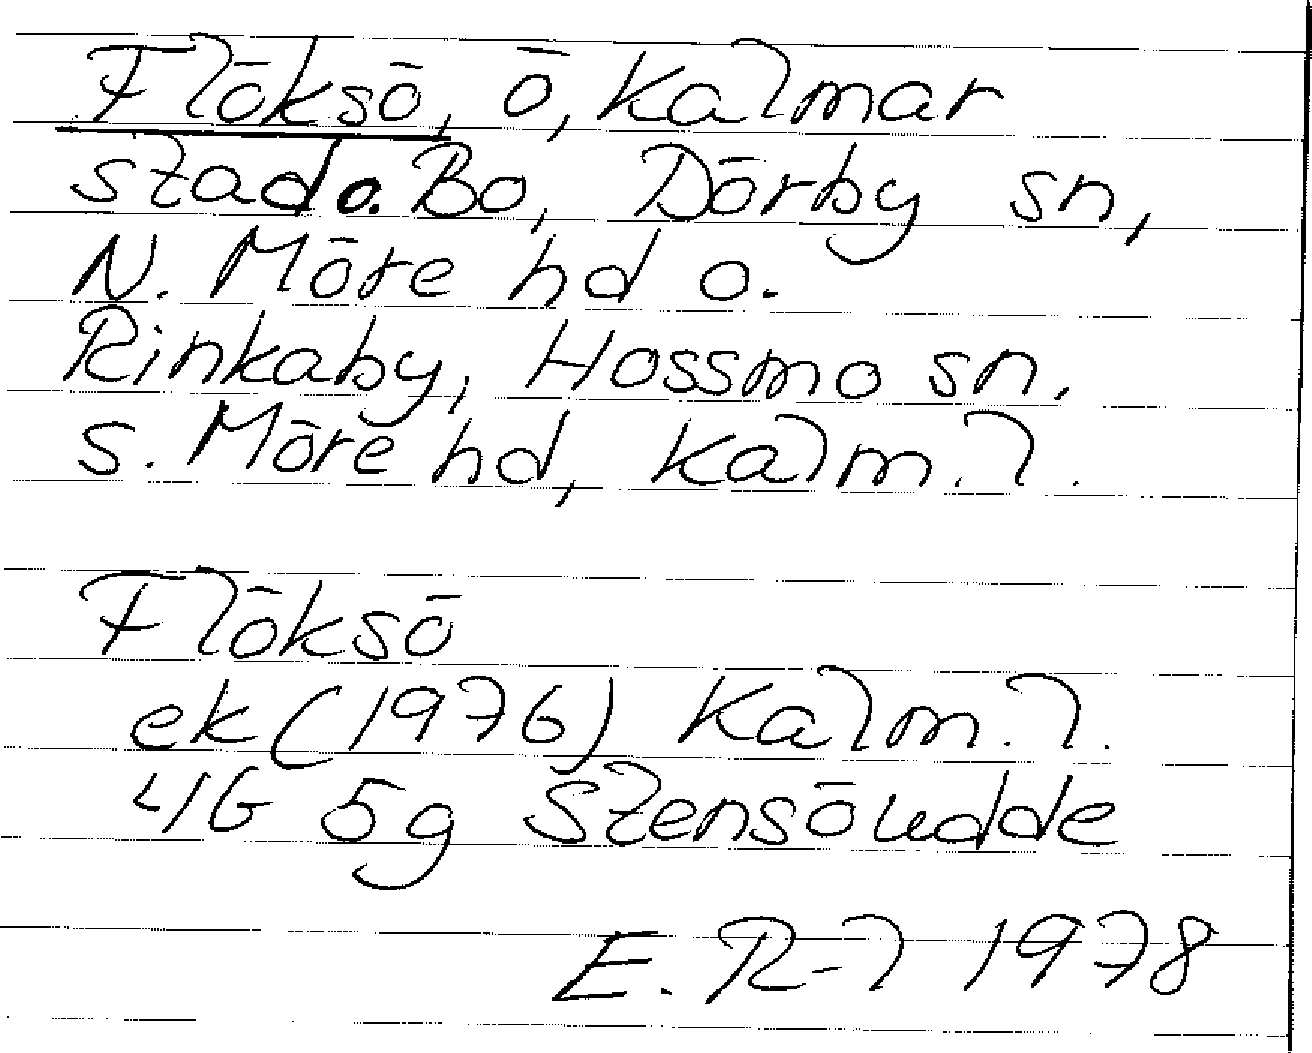 Flöksö, ö, Kalmar
stad o. Bo, Dörby sn,
N. Möre hd o.
Rinkaby, Hossmo sn.
S. Möre hd, Kalm. l.
Flöksö
ek (1976) Kalm. l.
4G 5g Stensöudde
E. R-l 1978